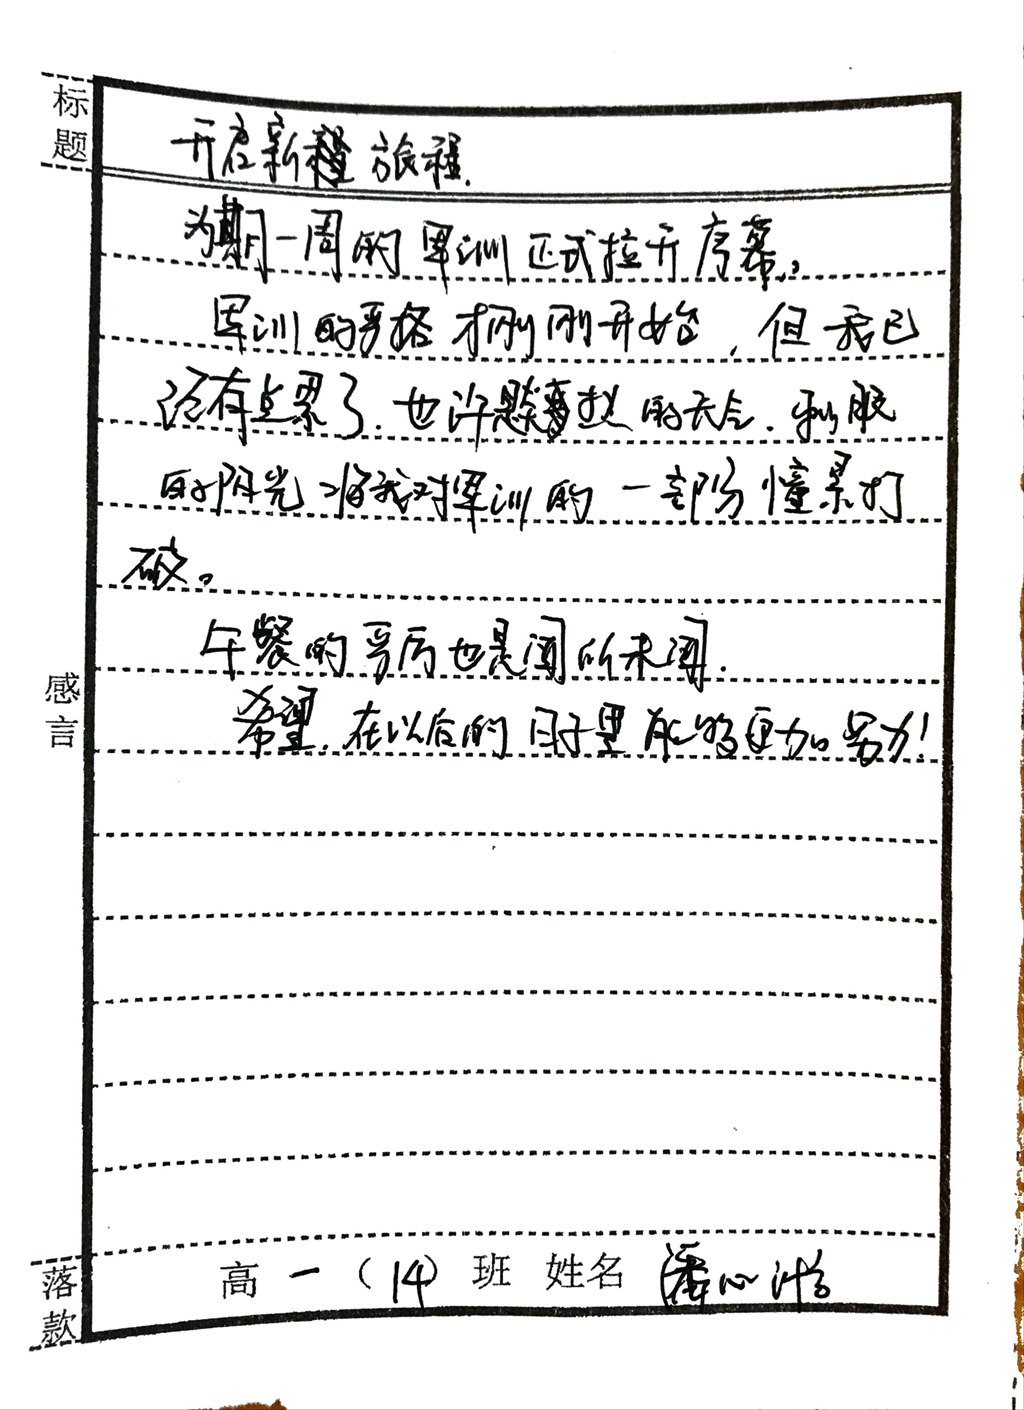 标题
开启新 旅程.
为期一周的军训正式拉开序幕。
军训的严格才刚刚开始，但我已
经有点累了.也许是 的天气.刺眼
的阳光 将我对军训的一部分憧景打
破。
午餐的 也是闻所未闻.
希望.在以后的日子里能够更加努力!
感言
落款
高一（14）班 姓名 潘心